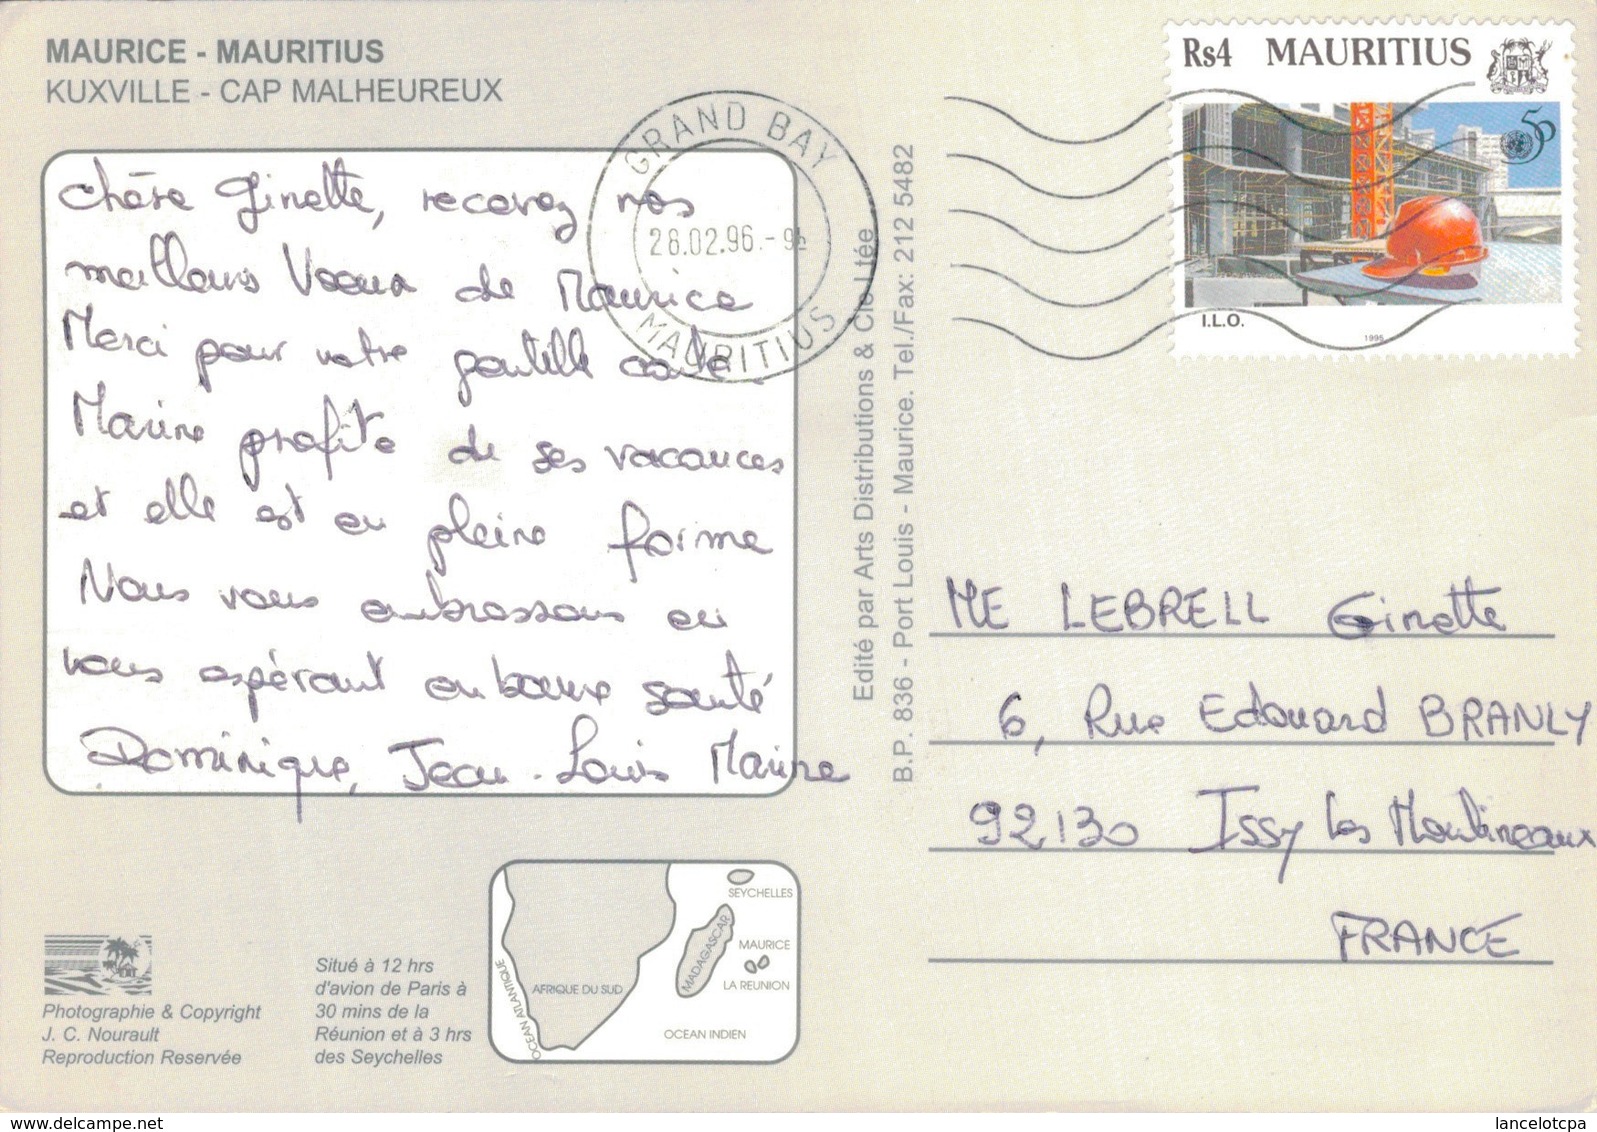 MAURICE - MAURITIUS
KUXVILLE - CAP MALHEUREUX
chère Ginette, recevez nos
meilleurs Voeux de Maurice
Merci pour votre gentille carte
Marine profite de ses vacances
et elle est en pleine forme
Nous vous embrassons en
vous espérant en bonne santé
Dominique, Jean-Louis Marine
GRAND BAY
28.02.96.-9h
MAURITIUS
Edité par Arts Distributions & Cie Ltée
B.P. 836 - Port Louis - Maurice. Tel./Fax: 212 5482
Rs4 MAURITIUS
50
I.L.O.
1995
ME LEBRELL Ginette
6, Rue Edouard BRANLY
92130 Issy les Moulineaux
FRANCE
Photographie & Copyright
J. C. Nourault
Reproduction Reservée
Situé à 12 hrs
d'avion de Paris à
30 mins de la
Réunion et à 3 hrs
des Seychelles
SEYCHELLES
MADAGASCAR
MAURICE
LA REUNION
AFRIQUE DU SUD
OCEAN ATLANTIQUE
OCEAN INDIEN
lancelotcpa